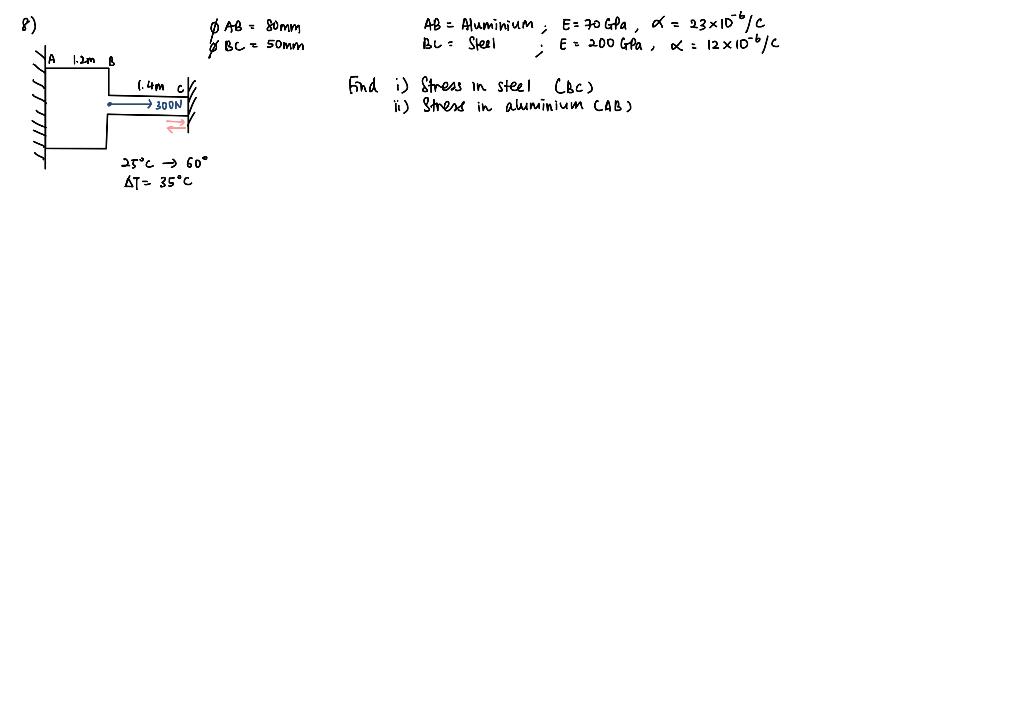 8)
ϕ AB = 80mm
ϕ BC = 50mm
AB = Aluminium ; E = 70 GPa , α = 23×10⁻⁶/C
BC = Steel ; E = 200 GPa , α = 12×10⁻⁶/C
A 1.2m B
1.4m C
300N
Find i) Stress in steel (BC)
ii) Stress in aluminium (AB)
25°C → 60°
ΔT = 35°C